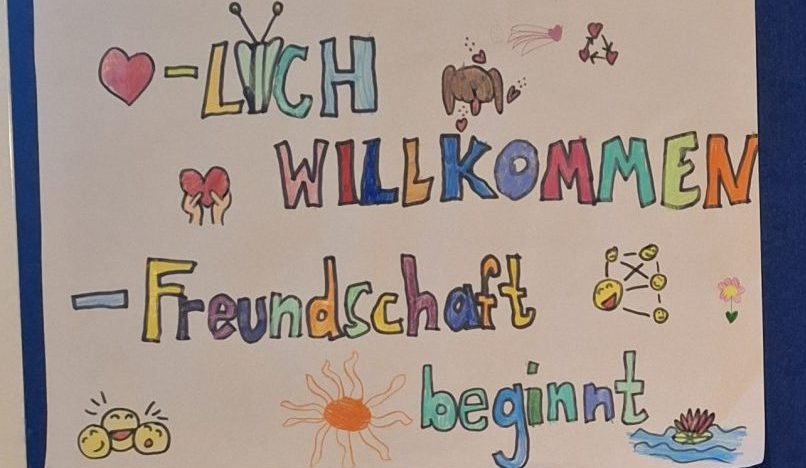 -LICH
WILLKOMMEN
-Freundschaft
beginnt